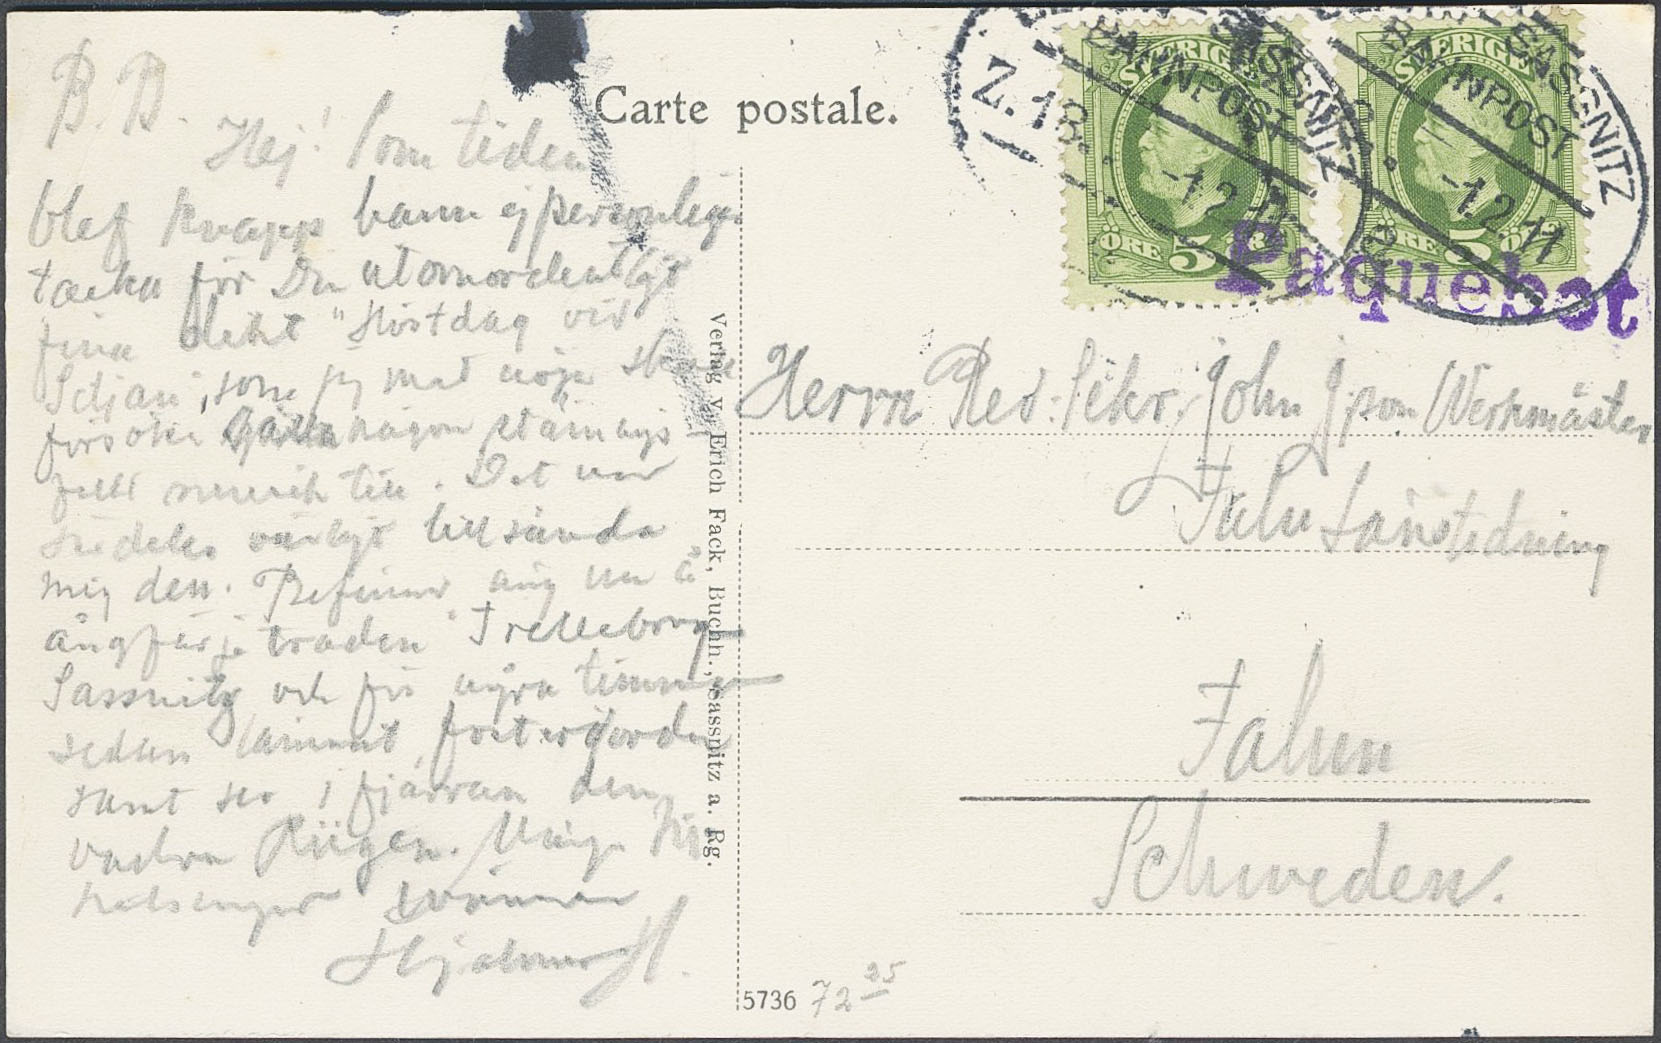 Carte postale.
B. B.
Hej! Som tiden
blef knapp hann ej personligen
tacka för Din utomordentligt
fina dikt "Höstdag vid
Siljan", som jag med nöje skall
försöka hågon stämnings-
full musik till. Det var
särdeles vänligt tillsända
mig den. Befinner mig nu å
ångfärjetraden Trelleborg
Sassnitz och för några timmar
sedan lämnat fosterjorden
samt ser i fjärran den
vackra Rügen. Många
hälsningar vännen
Hjalmar M.
Verlag v. Erich Fack, Buchh., Sassnitz a. Rg.
BAHNPOST
SASSNITZ
Z. 18
-1.2.11
BAHNPOST
SASSNITZ
-1.2.11
SVERIGE
ÖRE 5 ÖRE
SVERIGE
ÖRE 5 ÖRE
Paquebot
Herrn Red. Sekr. John J:son Werkmäster
Falu Länstidning
Falun
Schweden.
5736
72 25